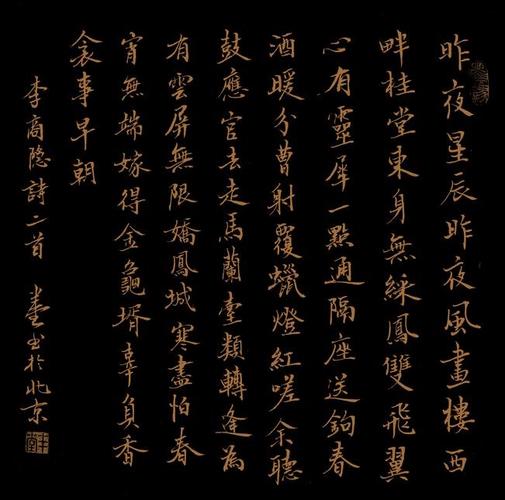 昨夜星辰昨夜風畫樓西
畔桂堂東身無綵鳳雙飛翼
心有靈犀一點通隔座送鉤春
酒暖分曹射覆蠟燈紅嗟余聽
鼓應官去走馬蘭臺類轉逢為
有雲屏無限嬌鳳城寒盡怕春
宵無端嫁得金龜壻辜負香
衾事早朝
李商隐詩二首 书於北京